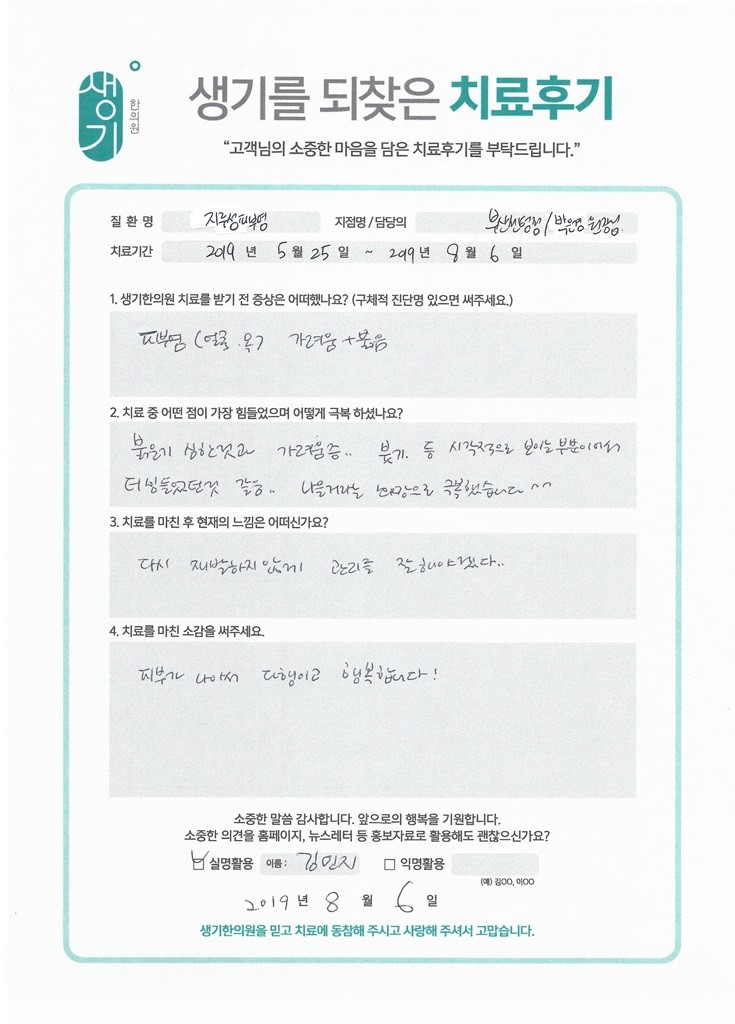 생기
한의원
생기를 되찾은 치료후기
“고객님의 소중한 마음을 담은 치료후기를 부탁드립니다.”
질 환 명 지루성피부염 지점명 / 담당의 부산센텀점/박은영 원장님
치료기간 2019 년 5 월 25 일 ~ 2019 년 8 월 6 일
1. 생기한의원 치료를 받기 전 증상은 어떠했나요? (구체적 진단명 있으면 써주세요.)
피부염 (얼굴.목) 가려움+붉음
2. 치료 중 어떤 점이 가장 힘들었으며 어떻게 극복 하셨나요?
붉음기 심한것과 가려움증.. 붓기. 등 시각적으로 보이는 부분이어서
더 힘들었던것 같음.. 나을거라는 희망으로 극복했습니다 ^^
3. 치료를 마친 후 현재의 느낌은 어떠신가요?
다시 재발하지 않게 관리를 잘 해야겠다..
4. 치료를 마친 소감을 써주세요.
피부가 나아서 다행이고 행복합니다!
소중한 말씀 감사합니다. 앞으로의 행복을 기원합니다.
소중한 의견을 홈페이지, 뉴스레터 등 홍보자료로 활용해도 괜찮으신가요?
실명활용 이름 : 김민지 익명활용
(예) 김OO, 이OO
2019 년 8 월 6 일
생기한의원을 믿고 치료에 동참해 주시고 사랑해 주셔서 고맙습니다.